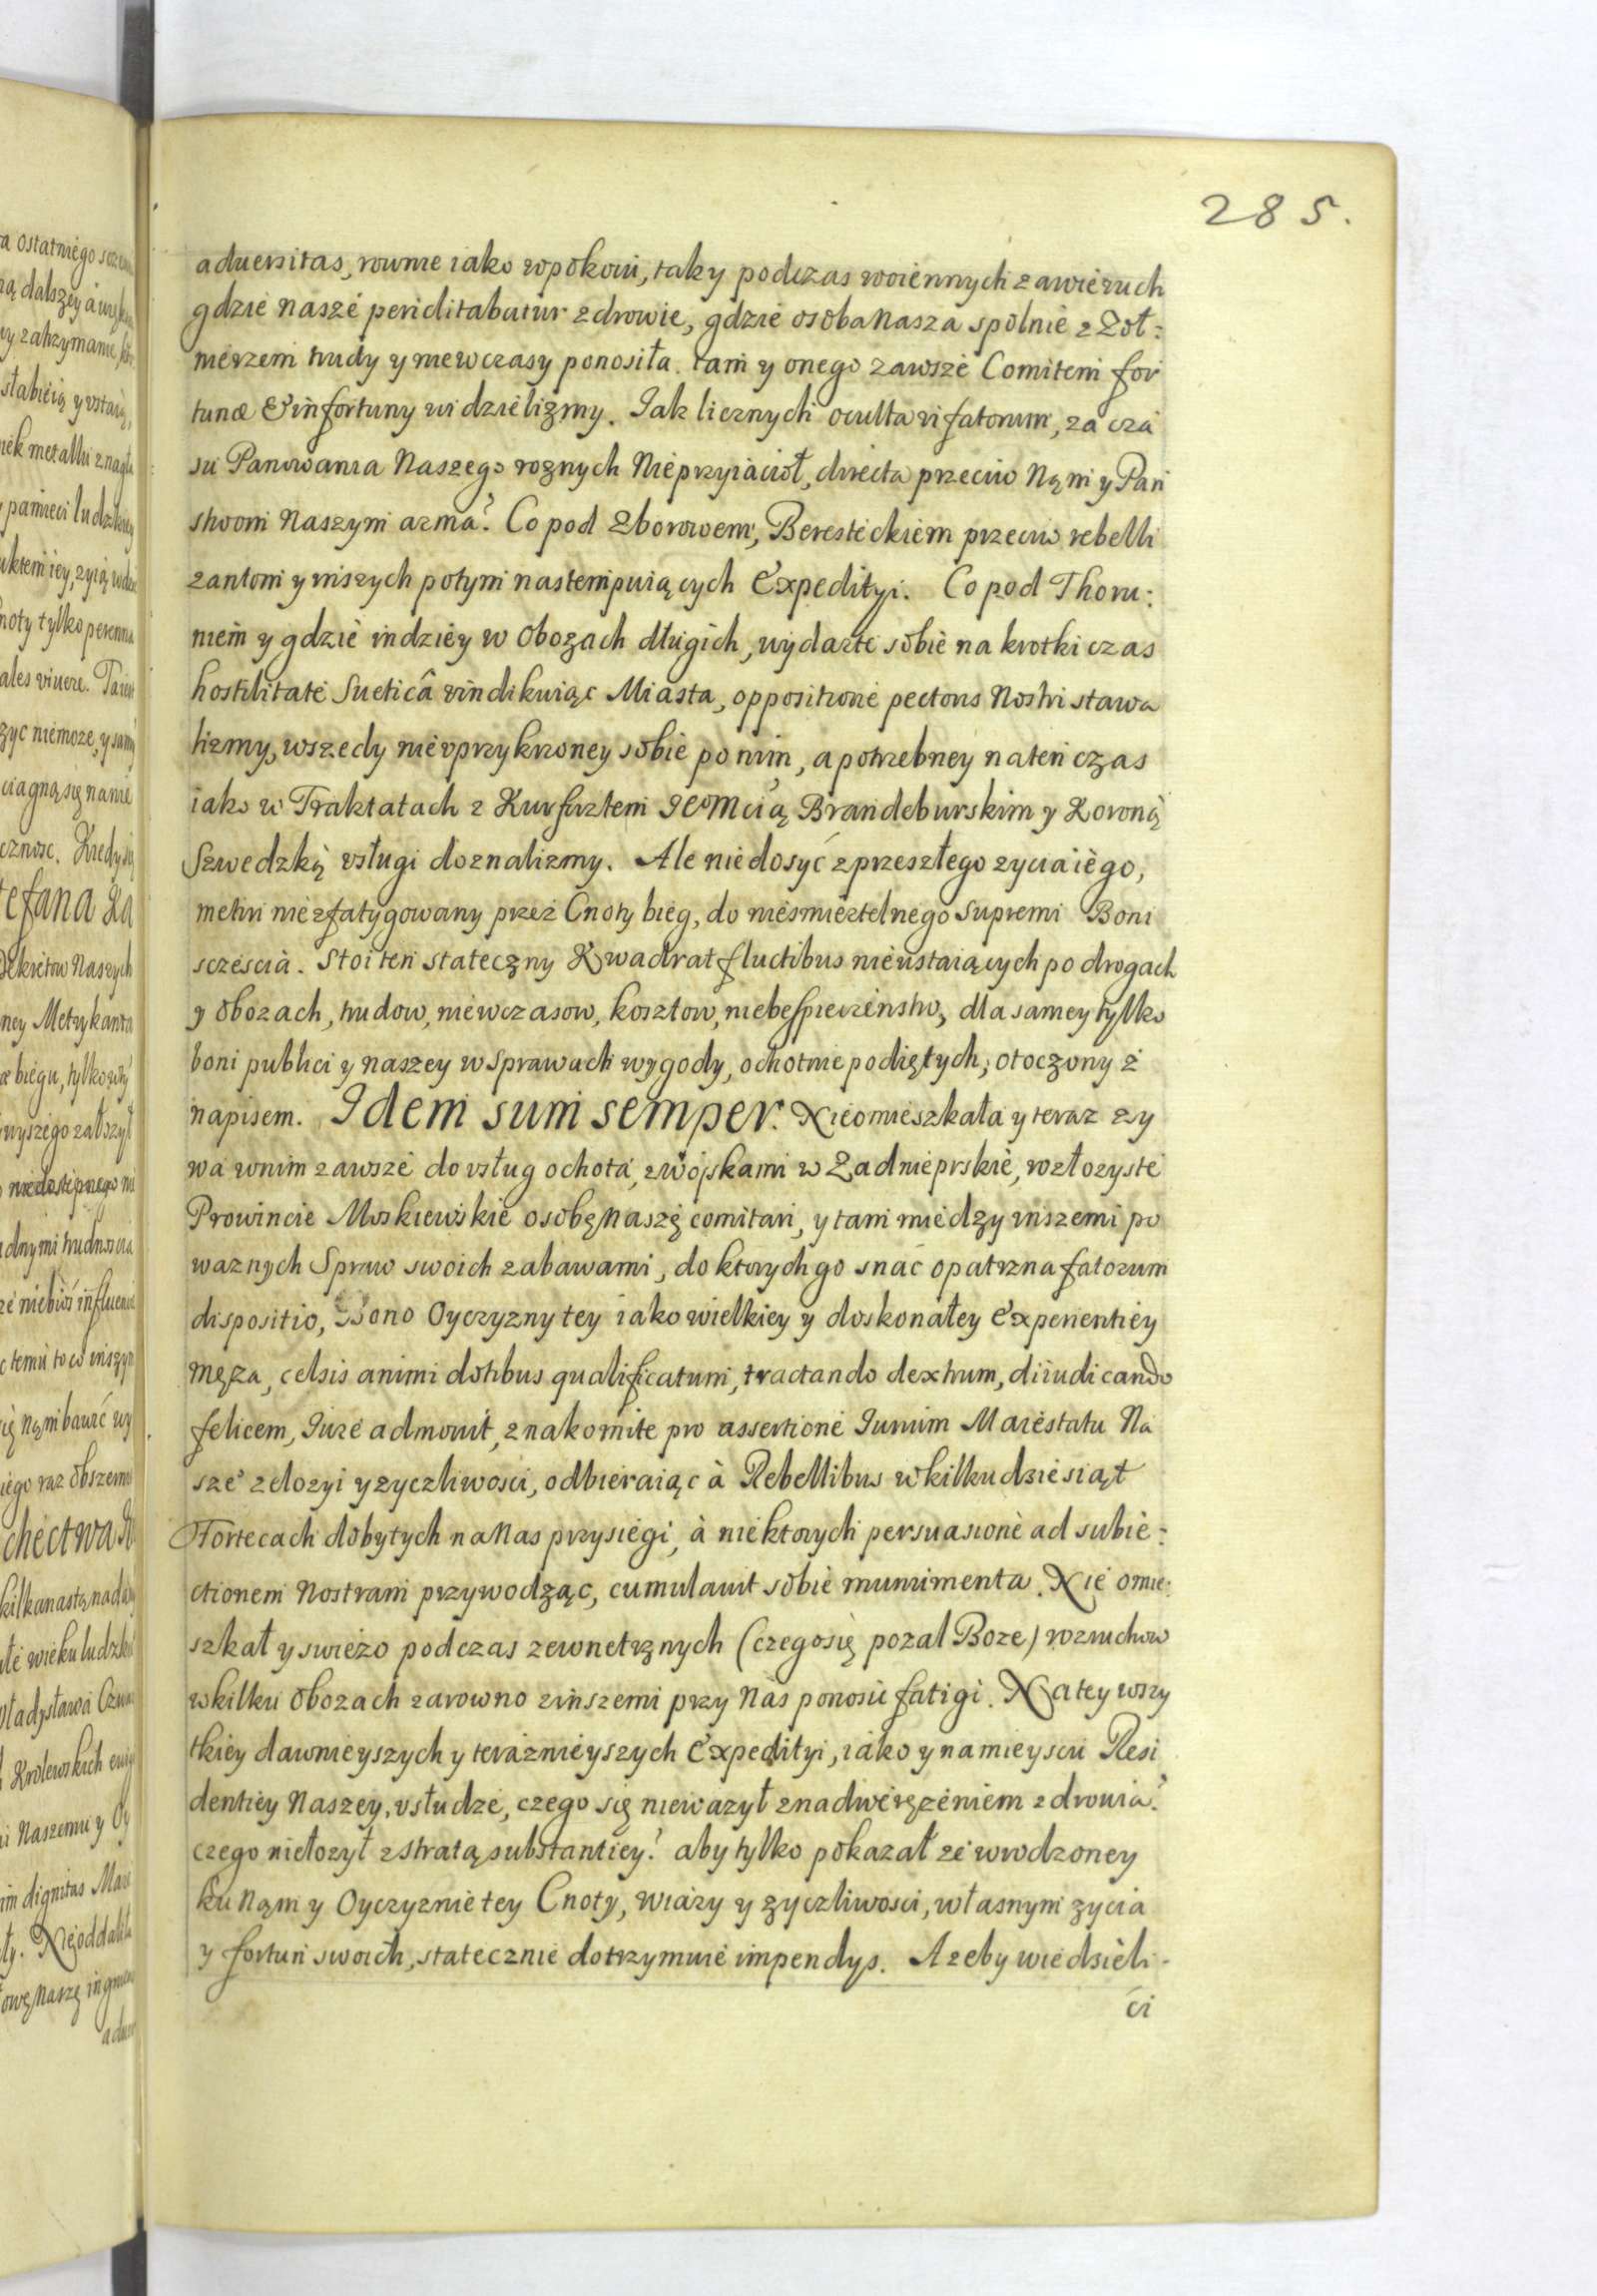 285.
aduersitas, rownie iako wpokoiu, tak y podczas woiennych zawieruch
gdzie nasze periditabatur zdrowie, gdzie osoba Nasza spolnie z Zoł:
nierzem trudy y niewczasy ponosiła. tam y onego zawsze Comitem for
tunæ & infortuny widzielizmy. Jak licznych oculta vi fatorum, za cza
su Panowania Naszego roznych Nieprzyiacioł, directa przeciw Nąm y Pań
stwom Naszym arma? Co pod Zborowem, Beresteckiem przeciw rebelli
zantom y inszych potym nastempuiących Expedityi. Co pod Thoru:
niem y gdzie indziey w Obozach długich, wydarte sobie na krotki czas
hostilitate Sueticâ vindikuiąc Miasta, oppositione pectoris Nostri stawa
lizmy, wszedy nievprzykrzoney sobie po nim, a potrzebney na ten czas
iako w Traktatach z Kurfirztem JeoMcią Brandeburskim y Koroną
Szwedzką vsługi doznalizmy. Ale niedosyć z przeszłego zycia iego,
metiri niezfatygowany przez Cnoty bieg, do niesmiertelnego Supremi Boni
sczescia. Stoi ten stateczny Kwadrat fluctibus nieustaiących po drogach
y obozach, trudow, niewczasow, kosztow, niebespieczenstw, dla samey tylko
boni publici y naszey w sprawach wygody, ochotnie podiętych, otoczony z
napisem. Idem sum semper. Nieomieszkała y teraz zy
wa wnim zawsze do vsług ochota, zwoyskami w Zadnieprskie, rozłozyste
Prowincie Moskiewskie osobę naszę comitari, y tam miedzy inszemi po
waznych Spraw swoich zabawami, do ktorych go snac opatrzna fatorum
dispositio, Bono Oyczyzny tey iako wielkiey y doskonałey Experientiey
męza, celsis animi dotibus qualificatum, tractando dextrum, diiudicando
felicem, Iure admouit, znakomite pro assertione Iurium Maiestatu Na
sze? zelozyi y zyczliwosci, odbieraiąc à Rebellibus w kilkudziesiąt
Fortecach dobytych na Nas przysiegi, à niektorych persuasione ad subie:
ctionem Nostram przywodząc, cumulauit sobie munimenta. Nie omie:
szkał y swiezo podczas zewnetrznych (czego się pozal Boze) rozruchow
wkilku obozach zarowno zinszemi przy Nas ponosic fatigi. Na tey wszy
tkiey dawnieyszych y teraznieyszych Expedityi, iako y na mieyscu Resi
dentiey Naszey, vsłudze, czego się niewazył znadwerężeniem zdrowia?
czego niełozył z stratą substantiey? aby tylko pokazał ze wrodzoney
ku Nąm y Oyczyznie tey Cnoty, wiary y zyczliwosci, własnym zycia
y fortun swoich, statecznie dotrzymuie impendys. A zeby wiedzieli
ci